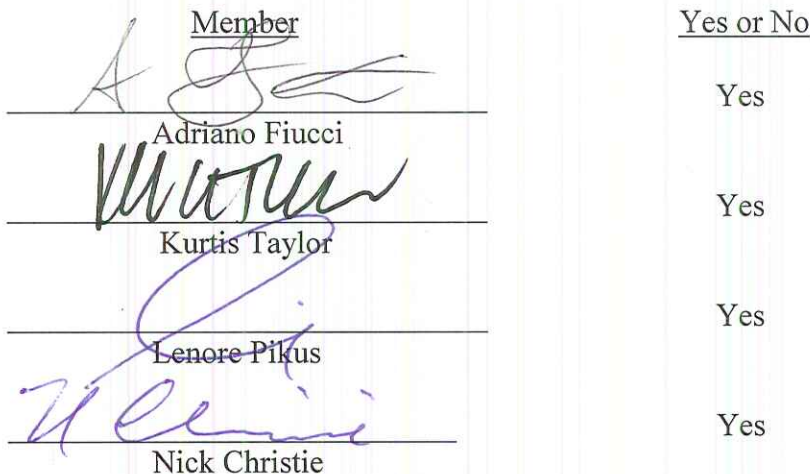 Member Yes or No
Yes
Adriano Fiucci
Yes
Kurtis Taylor
Yes
Lenore Pikus
Yes
Nick Christie